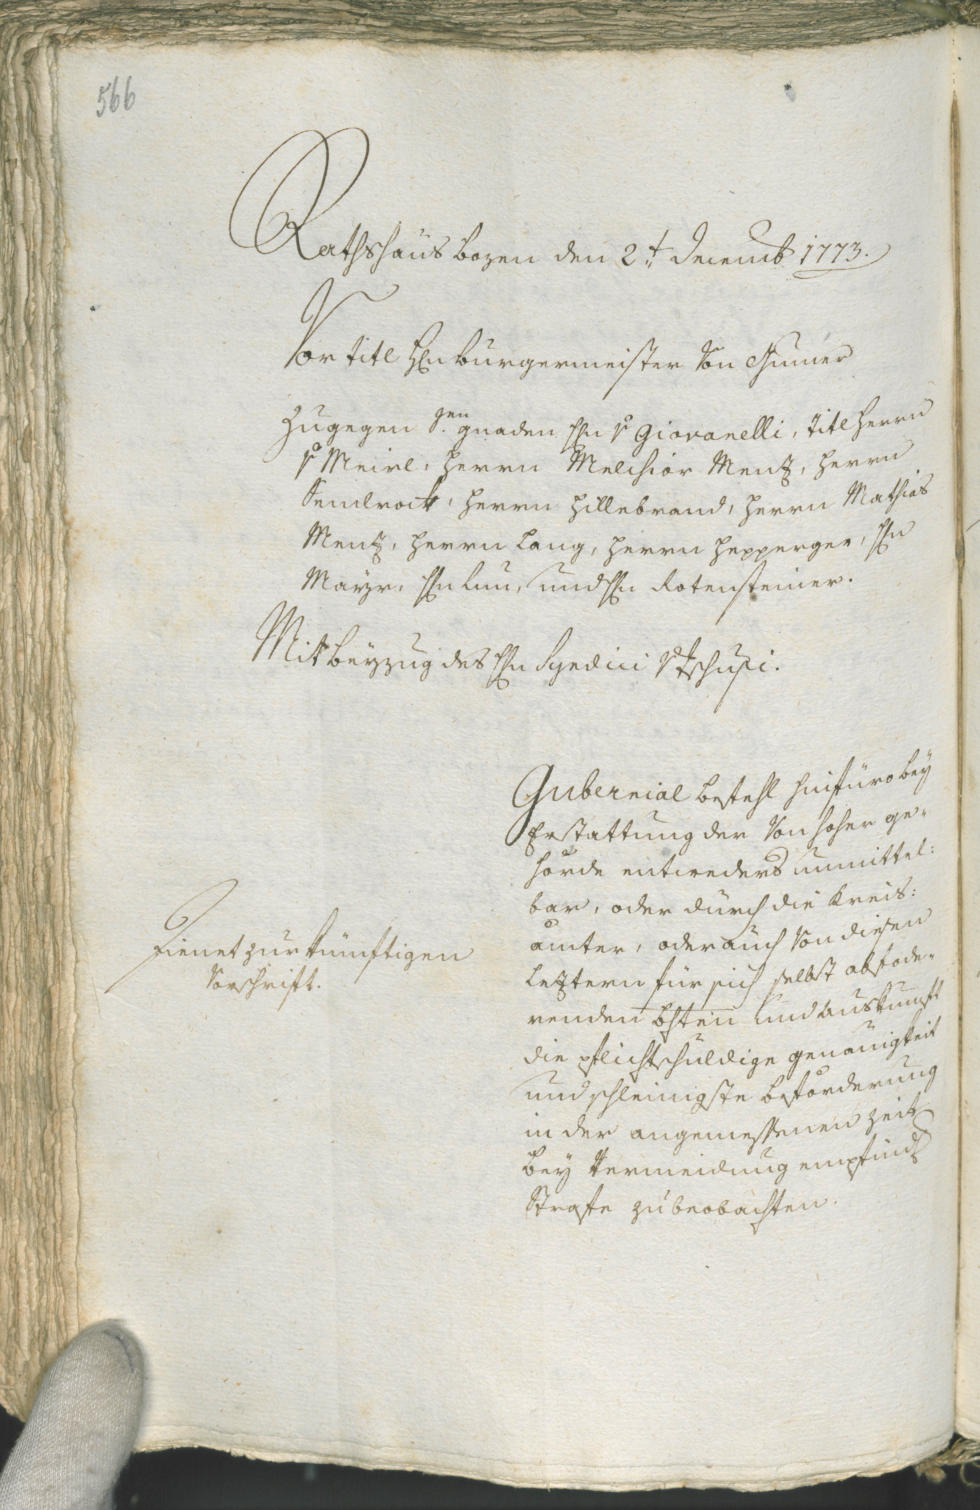 566
Rathshaus Bozen den 2.t Decemb 1773.
Vor titl Hln Burgermeister Von Gumer
Zugegen S.en gnaden Hln v Giovanelli, titl Herrn
v Meirl, Herrn Melchior Mentz, Herrn
Sendrock, Herrn Hillebrand, Herrn Mathias
Mentz, Herrn Lang, Herrn Hepperger, Hln
Mayr, Hln und Hln Rotensteiner.
Mit beyzug des Hln Syndici v Tschusi.
Gubernial befehl hinfüro bey
Erstattung der Von hoher ge-
hörde entweders unmittel:
bar, oder durch die Kreis:
ämter, oder auch Von diesen
Letztern für sich selbst abfode-
renden bhten und Auskunft
die pflichtschuldige genauigkeit
und schleinigste beförderung
in der angemessenen Zeit
bey Vermeidung empfindl
Strafe zu beobachten.
Dienet zur künftigen
Vorschrift.